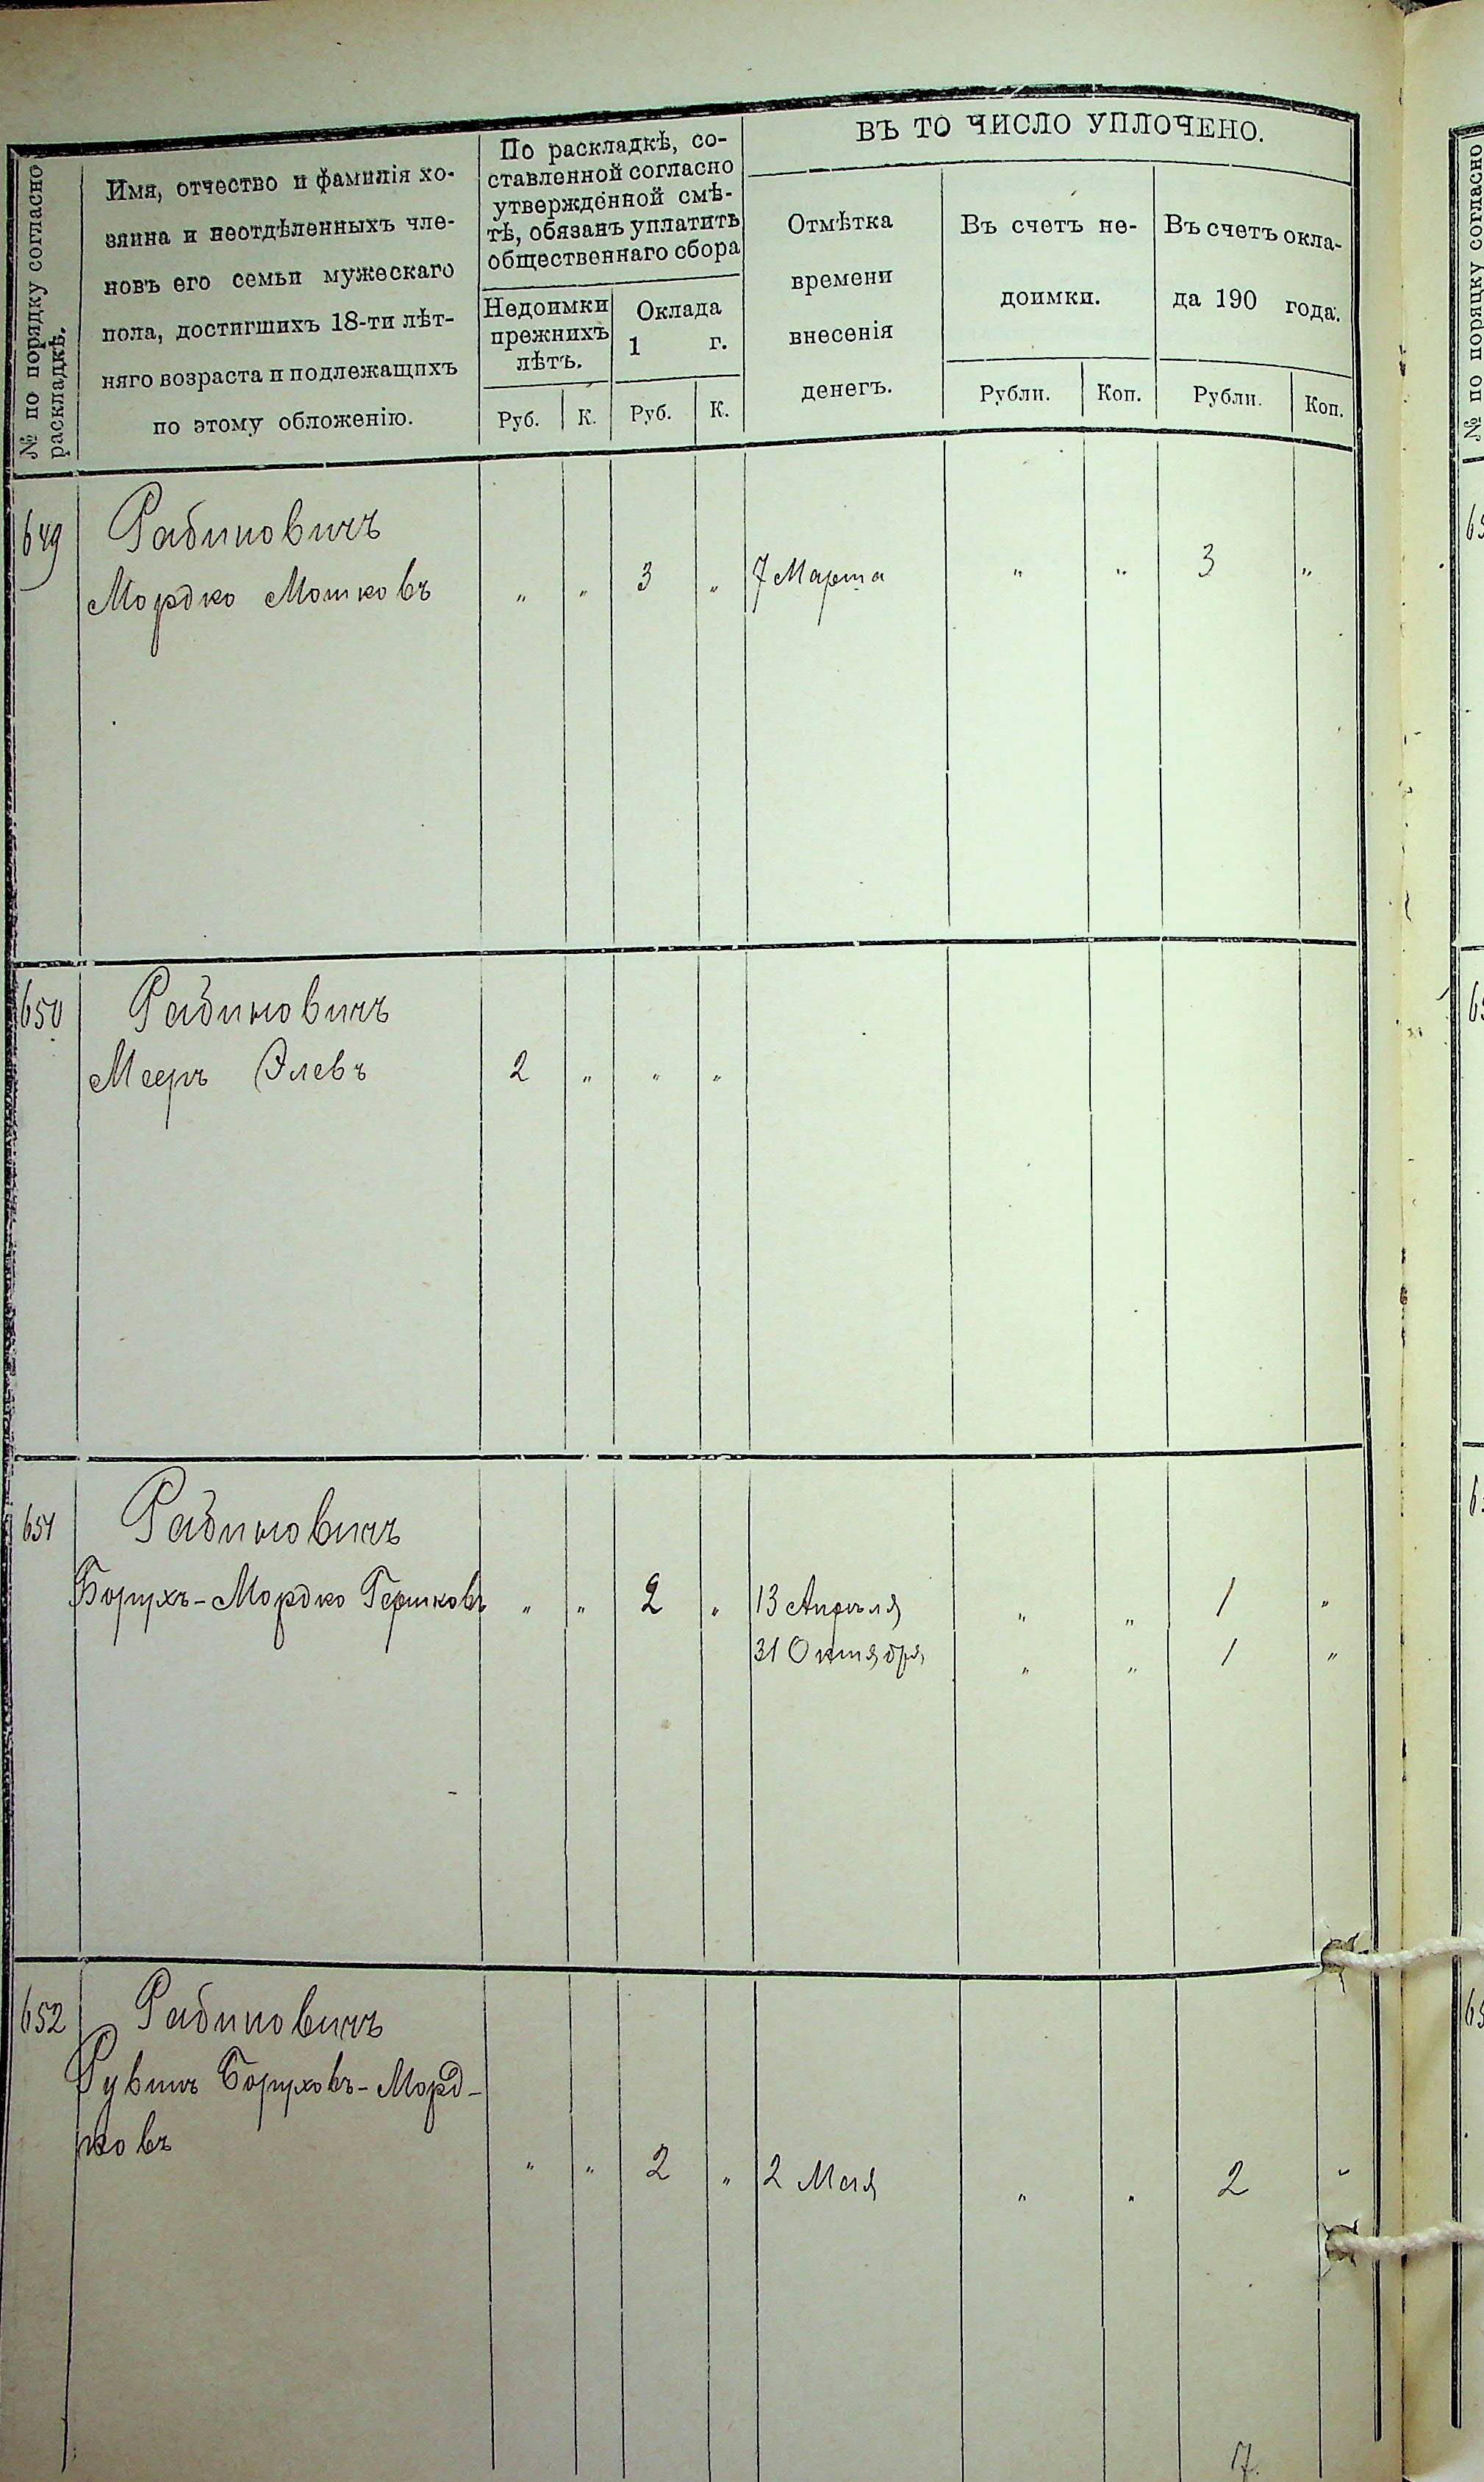 № по порядку согласно
раскладкѣ.
Имя, отчество и фамилія хо-
зяина и неотдѣленныхъ чле-
новъ его семьи мужескаго
пола, достигшихъ 18-ти лѣт-
няго возраста и подлежащихъ
по этому обложенію.
По раскладкѣ, со-
ставленной согласно
утвержденной смѣ-
тѣ, обязанъ уплатить
общественнаго сбора
Недоимки
прежнихъ
лѣтъ.
Оклада
1 г.
Руб. К. Руб. К.
ВЪ ТО ЧИСЛО УПЛОЧЕНО.
Отмѣтка
времени
внесенія
денегъ.
Въ счетъ не-
доимки.
Въ счетъ окла-
да 190 года.
Рубли. Коп. Рубли. Коп.
649 Рабиновичъ
Мордко Мошковъ " " 3 " 7 Марта " " 3 "
650 Рабиновичъ
Мееръ Элевъ 2 " " "
651 Рабиновичъ
Борухъ-Мордко Гершковъ " " 2 " 13 Апрѣля " " 1 "
31 Октября " " 1 "
652 Рабиновичъ
Рувинъ Боруховъ-Морд-
ковъ
" " 2 " 2 Мая " " 2 "
7.
№ по порядку согласно